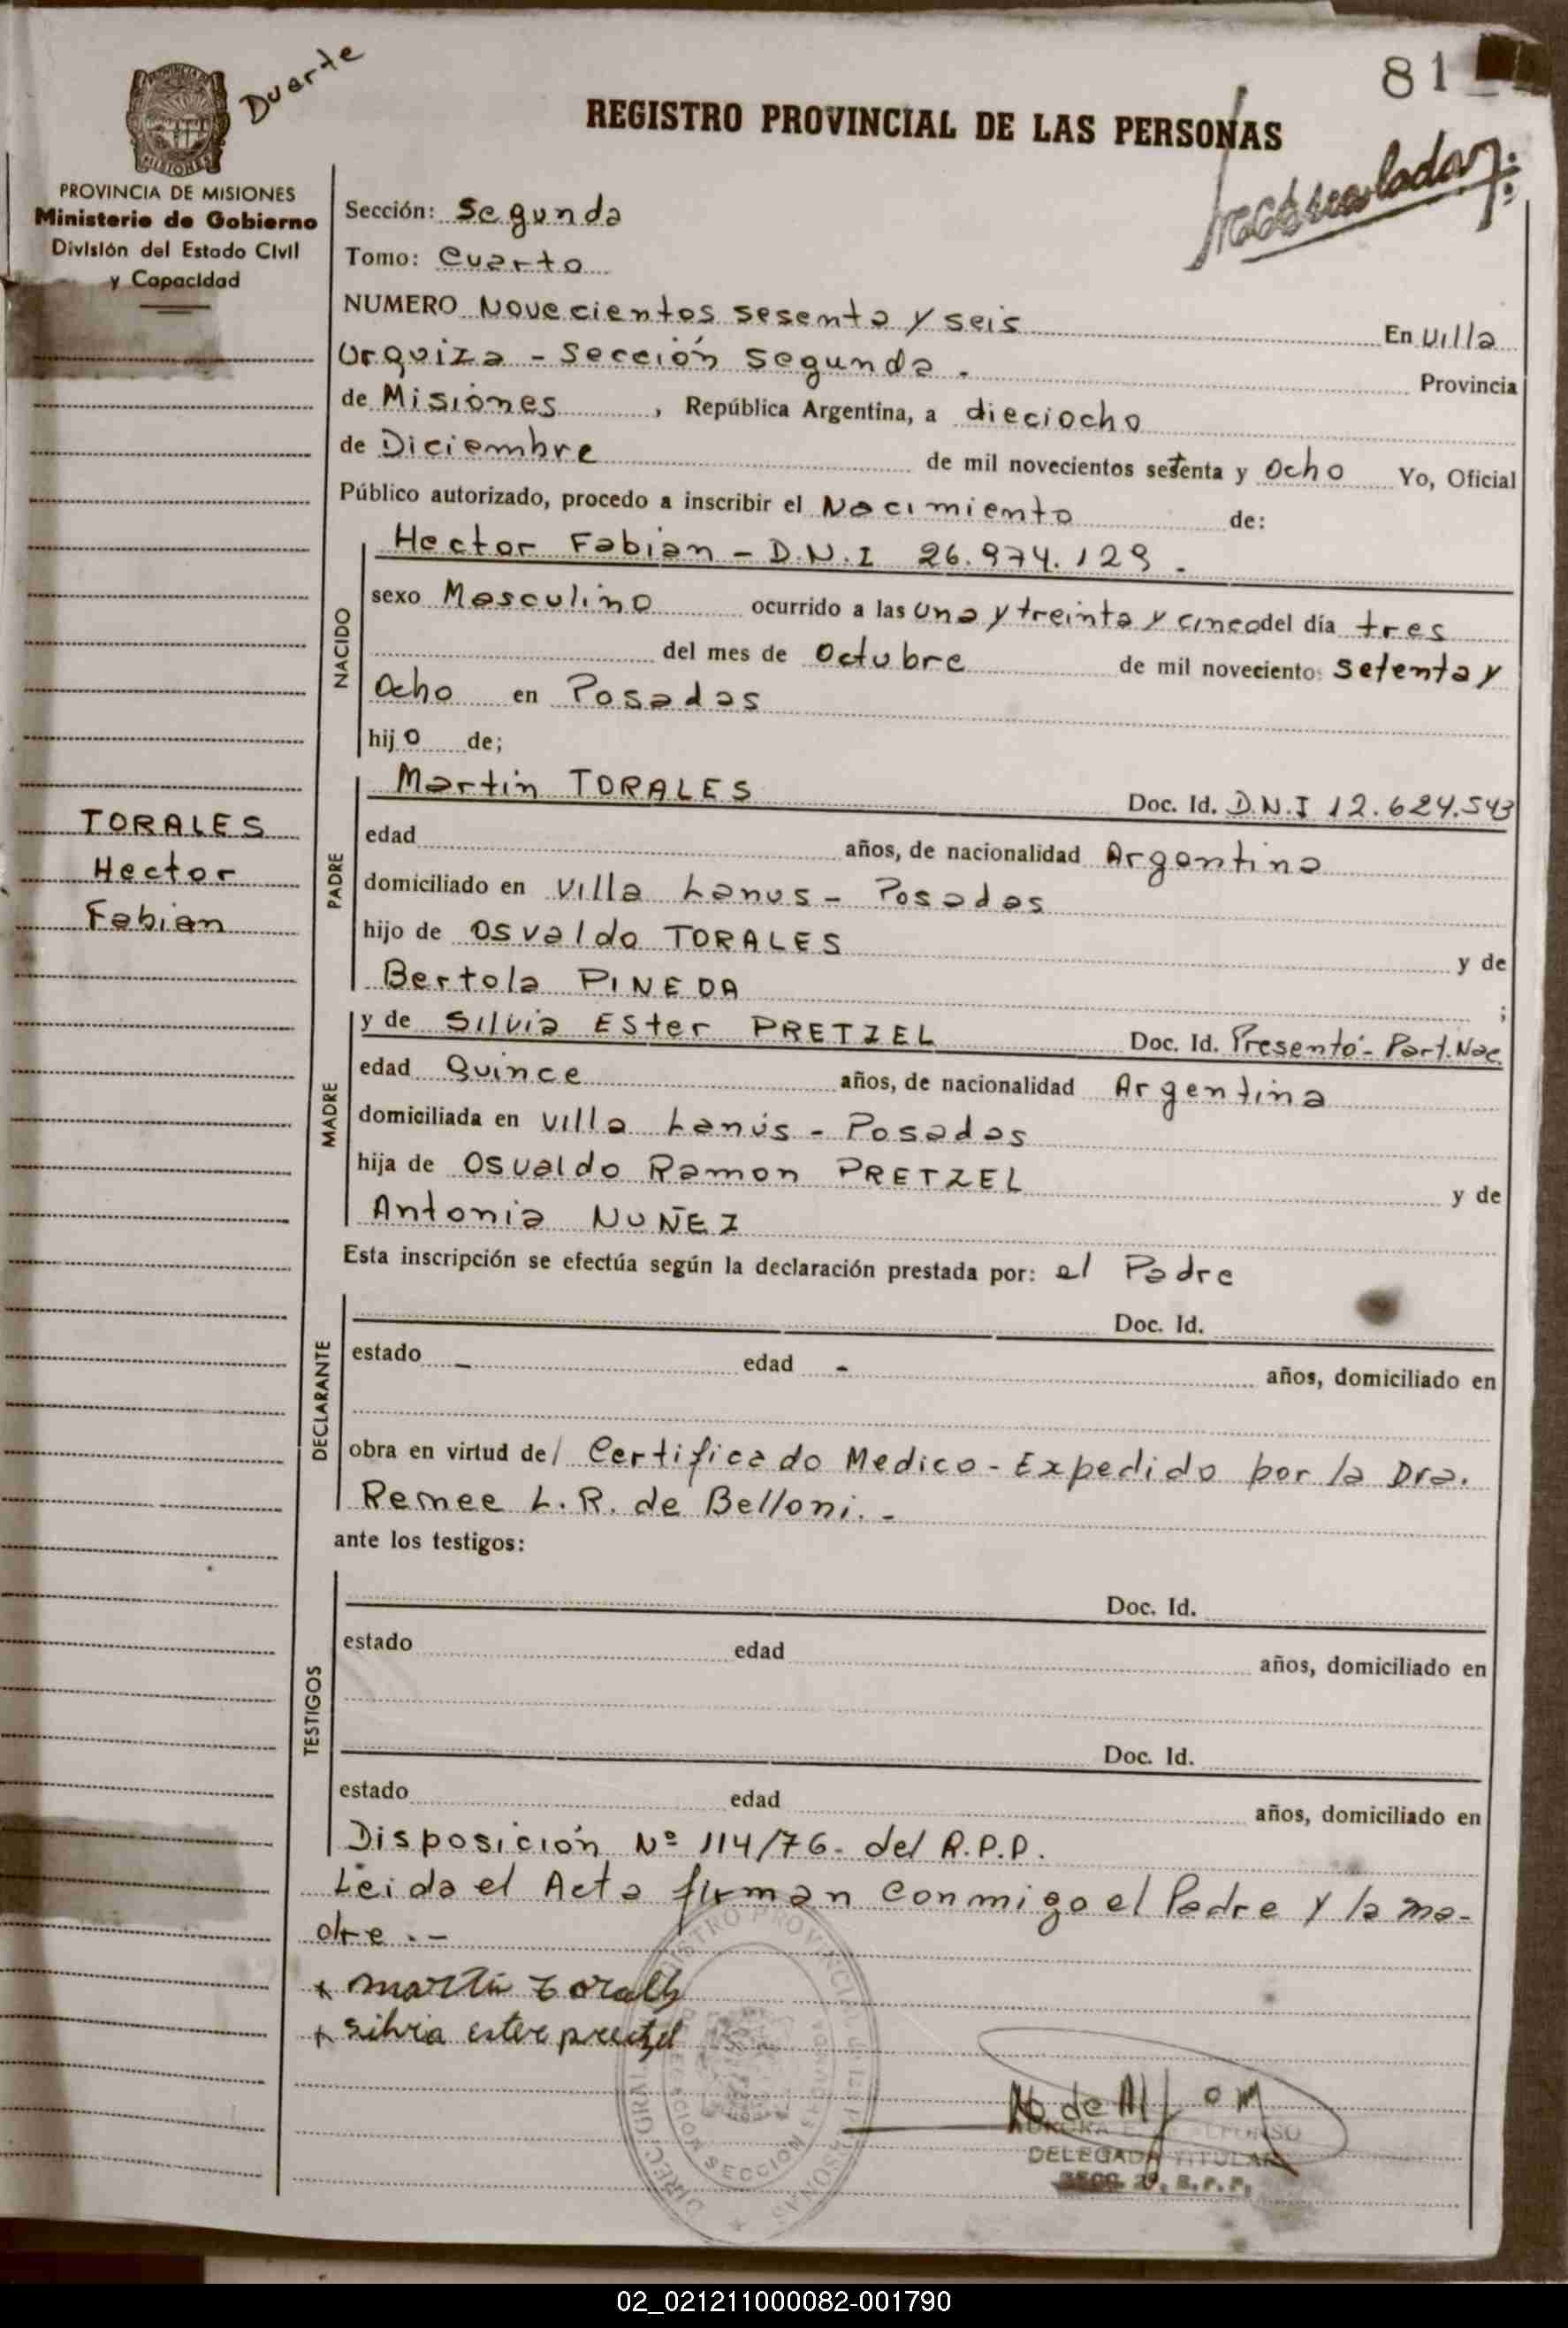 81
Duarte
REGISTRO PROVINCIAL DE LAS PERSONAS
MISIONES
PROVINCIA DE MISIONES
Ministerio de Gobierno
División del Estado Civil
y Capacidad
Sección: Segunda
Tomo: Cuarto
NUMERO Novecientos sesenta y seis En Villa
Urquiza - Sección Segunda. Provincia
de Misiones, República Argentina, a dieciocho
de Diciembre de mil novecientos setenta y Ocho Yo, Oficial
Público autorizado, procedo a inscribir el Nacimiento de:
NACIDO
Hector Fabian - D.N.I 26.974.129.
sexo Masculino ocurrido a las una y treinta y cinco del día tres
del mes de Octubre de mil noveciento: setenta y
Ocho en Posadas
hijo de;
TORALES
Hector
Fabian
PADRE
Martin TORALES Doc. Id. D.N.I 12.624.543
edad años, de nacionalidad Argentina
domiciliado en Villa Lanus - Posadas
hijo de Osvaldo TORALES y de
Bertola PINEDA ;
MADRE
y de Silvia Ester PRETZEL Doc. Id. Presentó - Part. Nac.
edad Quince años, de nacionalidad Argentina
domiciliada en Villa Lanús - Posadas
hija de Osvaldo Ramon PRETZEL y de
Antonia NUÑEZ
Esta inscripción se efectúa según la declaración prestada por: el Padre
DECLARANTE
Doc. Id.
estado - edad - años, domiciliado en
obra en virtud de/ Certificado Medico - Expedido por la Dra.
Remee L. R. de Belloni. -
ante los testigos:
TESTIGOS
Doc. Id.
estado edad años, domiciliado en
Doc. Id.
estado edad años, domiciliado en
Disposición Nº 114/76. del R.P.P.
Leida el Acta firman conmigo el Padre y la ma-
dre. -
x martin torales
x silvia ester pretzel
DELEGADA TITULAR
SECC. 2ª, R.P.P.
02_021211000082-001790